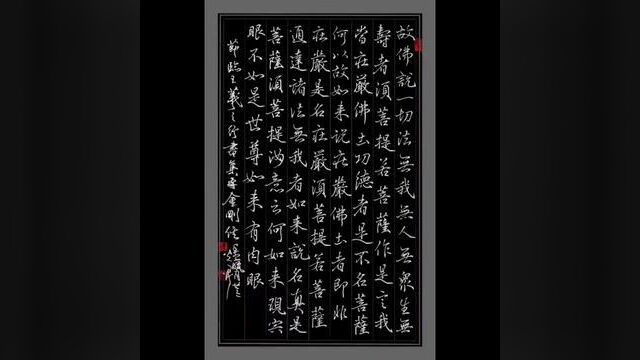 故佛說一切法無我無人無衆生無
壽者須菩提若菩薩作是言我
當莊嚴佛土功德者是不名菩薩
何以故如來說莊嚴佛土者即非
莊嚴是名莊嚴須菩提若菩薩
通達諸法無我者如來說名真是
菩薩須菩提汝意云何如來
眼不如是世尊如來有肉眼
節臨王羲之行書集字金剛經